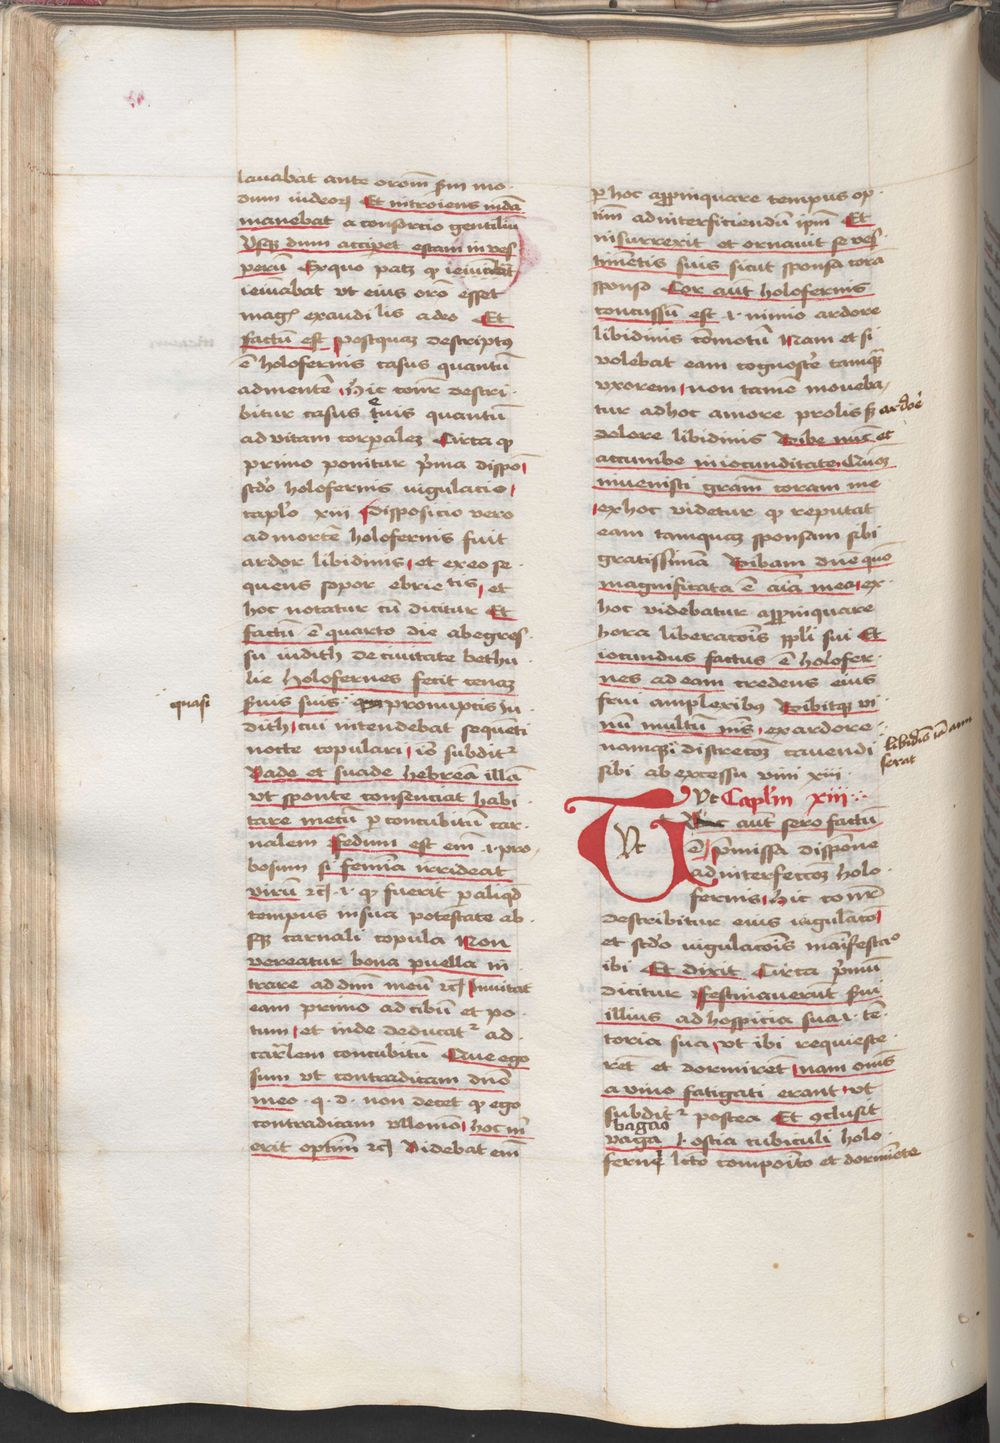 lauabat ante orom̄ scdm mo
dum iudeoꝝ Et introiens mda
manebat a consorcio gentiliū
vsqꝫ dum acciperet escam in ves
perū Ex quo patꝫ qꝫ ieiunabat
ieiunabat vt eius oro esset
magꝭ exaudi lis a deo Et
factū est postquaꝫ descriptꝰ
ē holofernis casus quantū
ad mentē hic cōnr̄ descri
bitur casus eius quantū
ad vitam corpalem Circa qꝫ
primo ponitur p̄ma dispō
scd̄o holofernis iugulacio
caplo xiii disposicio vero
ad mortē holofernis fuit
ardor libidinis et ex eo se
quens sopor ebrietatis et
hoc notatur cū dicitur Et
factū ē quarto die ab egres
su iudith de ciuitate bethu
lie holofernes fecit cenaꝫ
s̄uis suis promptis iu
quasi
dith cui intendebat sequēti
nocte copulari iō subditᷣ
Vade et suade hebrea illā
vt sponte consenciat habi
tare mecū p concubitū car
nalem fedum est em̄ .i. pro
bosum si femina irrideat
virū ⁊c̄ .i. qꝫ fuerit p aliqd
tempus in sua potestate ab
sqꝫ carnali copula Non
vereatur bona puella in
trare ad dnm meū ⁊c̄ Inuitat
eam primo ad cibū et po
tum et inde deducatᷣ ad
car̄lem concubitū Que ego
sum vt contradicam dn̄o
meo . q . d . non decet qꝫ ego
contradicam vllomō hoc m̄
erit optim̄ ⁊c̄ Videbat em̄
p hoc appinquare tempus op
tim̄ ad interficiendū ipm̄ Et
insurrexit et ornauit se ves
timentis suis sicut sponsa corā
sponso Cor aut̄ holofernis
concussū est .i. nimio ardore
libidinis cōmotū Nam et si
volebat eam cognosce̅ tamqꝫ
vxorem non tamē moueba
tur ad hoc amore prolis sꝫ ardore
dolore libidinis Bibe nūc et
accumbe in iocunditate Quoꝫ
inuenisti gram̄ coram me
ex hoc videtur qꝫ reputat
eam tamquaꝫ sponsam sibi
gratissimā Bibam dn̄e qūo
magnificata ē aīa mea ex
hoc videbatur appinquare
hora liberacōis ppl̄i sui Et
iocundus factus ē holofer
nes ad eam credens eius
frui amplexibꝰ Bibitqꝫ vi
nū multū nīs ex ardore
libidīs iā am
serat
namqꝫ discrecōꝫ cauendi
sibi ab excessu vini xiii
Vt Caplm̄ xiii
aut̄ sero factū
Vt
ē p̄missa dispone
ad interfeccoꝫ holo
fernis hic cōnr̄
describitur eius iugulaco
et scd̄o iugulacōis maīfestaco
ibi Et dixit Circa p̄mū
dicitur festinauerūt s̄ui
illius ad hospicia sua .i. tē
toria sua vt ibi requiesce
rēt et dormirēt nam oīns
a vino fatigati erant vt
subditᷣ postea Et ꝯclusit
bagao
vaga .i. ostia cubiculi holo
ferne lcō composito et dormiēte